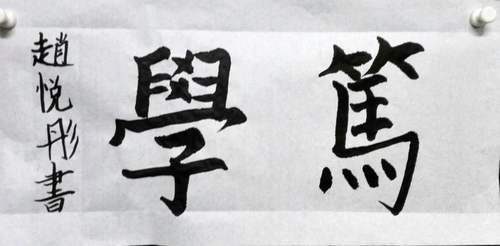 篤學
趙悦彤書